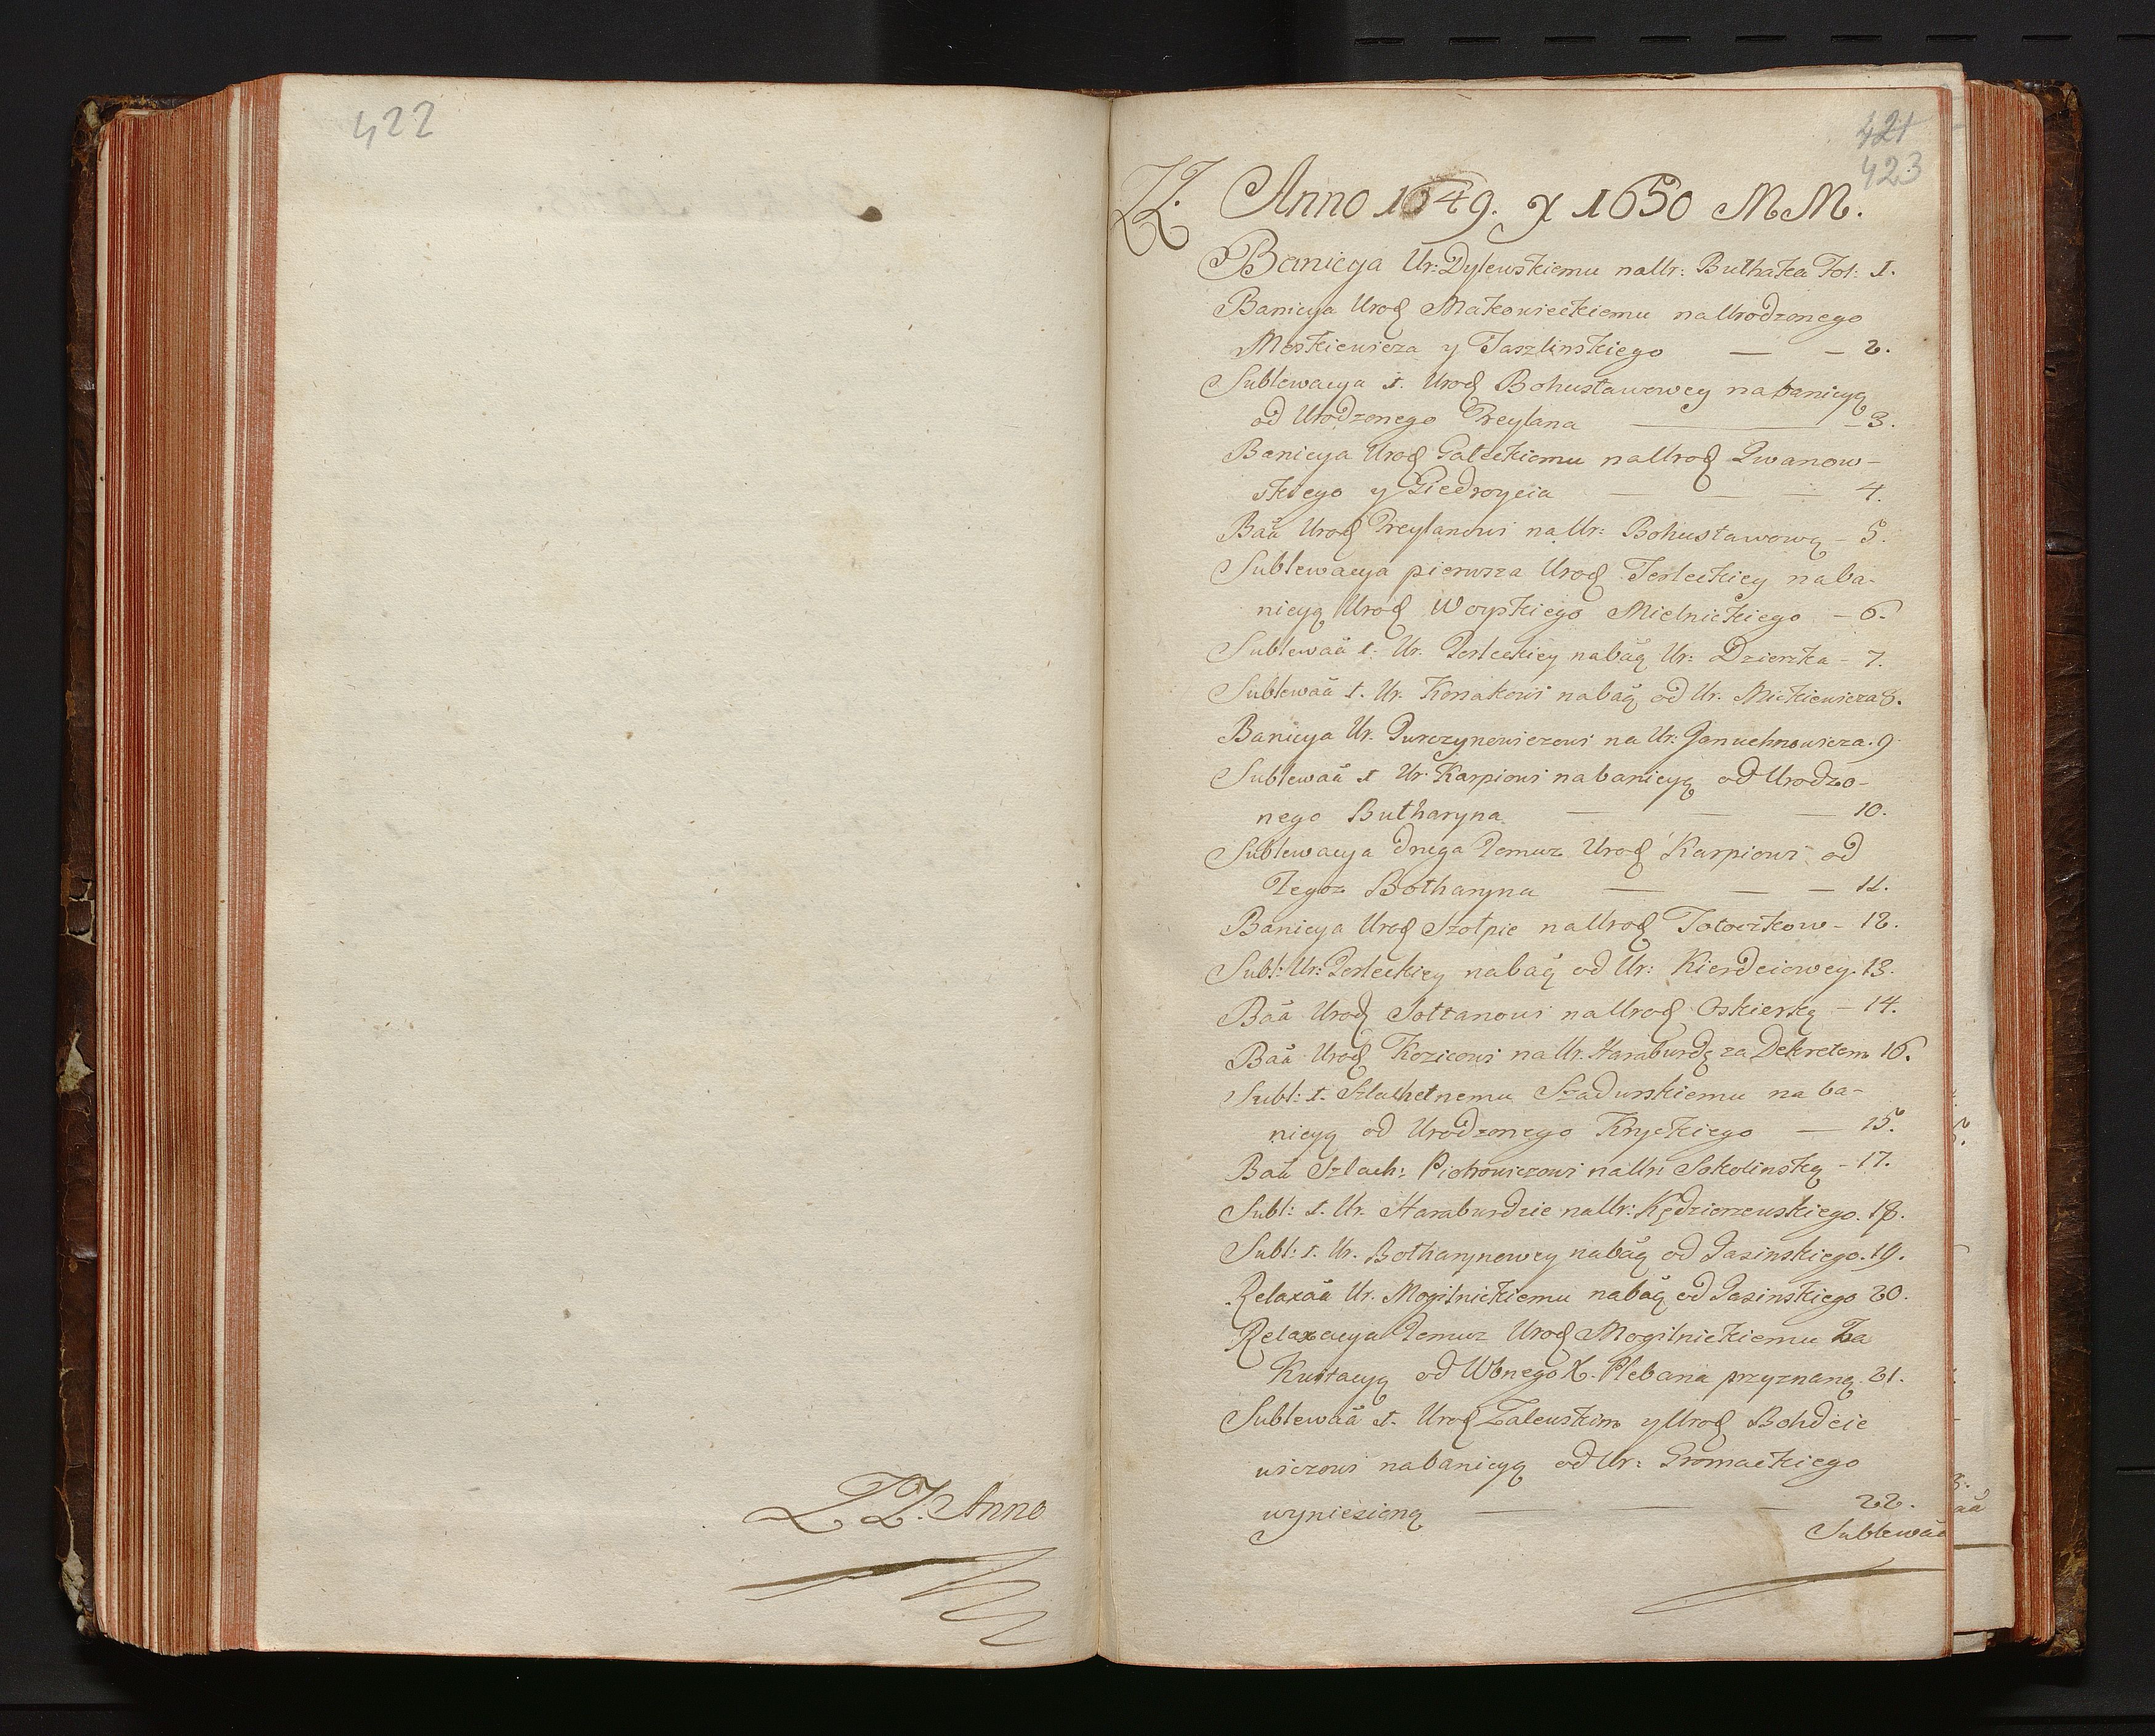 422
ZZ. Anno
421
423
ZZ. Anno 1649. y 1650 MM.
Banicya Ur: Dylewskiemu na Ur: Buthaka Fol: 1.
Banicya Urod Makowieckiemu na Urodzonego
Moskiewicza y Jaszlinskiego — — 2.
Sublewacya 1. Urod Bohusławowey na banicyą
od Urodzonego Preylana — — 3.
Banicya Urod Gałeckiemu na Urod Iwanow-
skiego y Giedroycia — — — 4.
Baä Urod Preylanowi na Ur: Bohusławową – 5.
Sublewacya pierwsza Urod Terleckiey na ba-
nicyą Urod Woyskiego Mielnickiego – 6.
Sublewaä 1. Ur. Terleckiey na baą Ur: Dzierzka – 7.
Sublewaä 1. Ur. Konakowi na baą od Ur. Mickiewicza 8.
Banicya Ur. Purczynewiczowi na Ur: Januchnowicza. 9
Sublewaä 1 Ur. Karpiowi na banicyą od Urodzo-
nego Butharyna — — — 10.
Sublewacya druga Temuz Urod Karpiowi od
Tegoz Botharyna — — — 11.
Banicya Urod Szołpie na Urod Tołoczkow – 12.
Subl: Ur: Terleckiey na baą od Ur: Kierdeiowey. 13.
Baä Urod Sołtanowi na Urod Oskierkę – 14.
Baä Urod Kozicowi na Ur. Haraburdę za Dekretem 16.
Subl: 1. Slachetnemu Szadurskiemu na ba-
nicyą od Urodzonego Kryckiego — 15.
Baä Szlach: Piotrowiczowi na Ur: Sokolinską – 17.
Subl: 1. Ur. Haraburdzie na Ur: Kędzierzewskiego. 18.
Subl: 1. Ur. Botharynowey na baą od Jasinskiego. 19.
Relaxaä Ur. Mogilnickiemu na baą od Jasinskiego 20.
Relaxacya Temuz Urod Mogilnickiemu Za
Kwitacyą od Wbnego X. Plebana przyznaną. 21.
Sublewaä 1. Urod Zalewskim y Urod Bohdcie
wiczowi na banicyą od Ur: Gromackiego
wyniesioną — — — 22.
Sublewaä